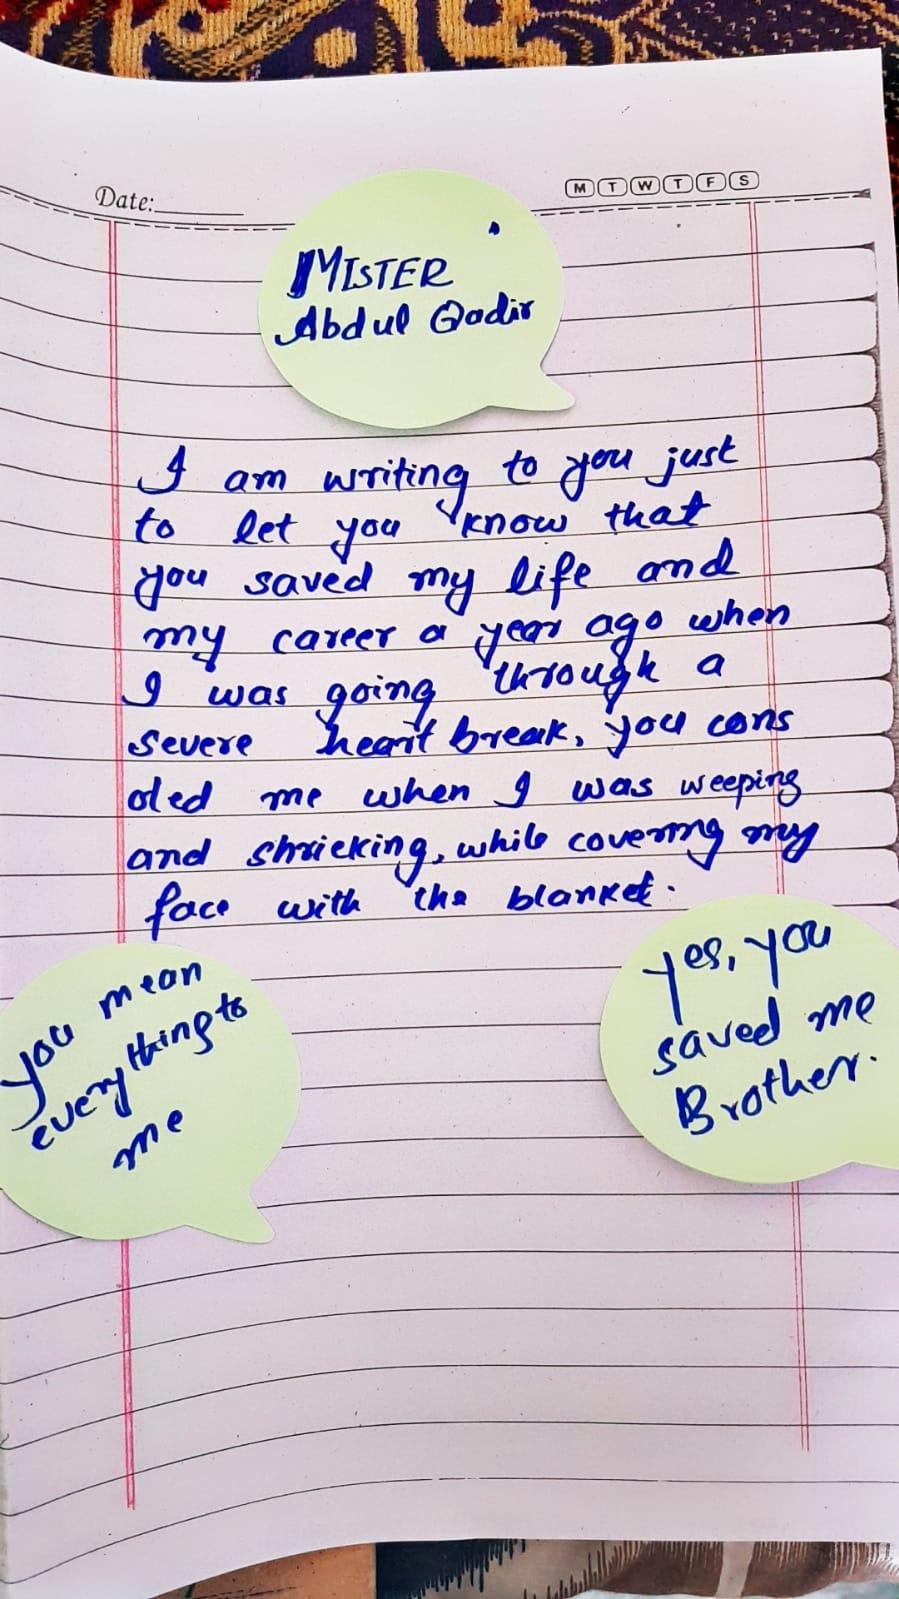 Date:
M T W T F S
MISTER
Abdul Qadir
I am writing to you just
to let you know that
you saved my life and
my career a year ago when
I was going through a
severe heart break, you cons
oled me when I was weeping
and shrieking, while covering my
face with the blanket.
you mean
everything to
me
yes, you
saved me
Brother.